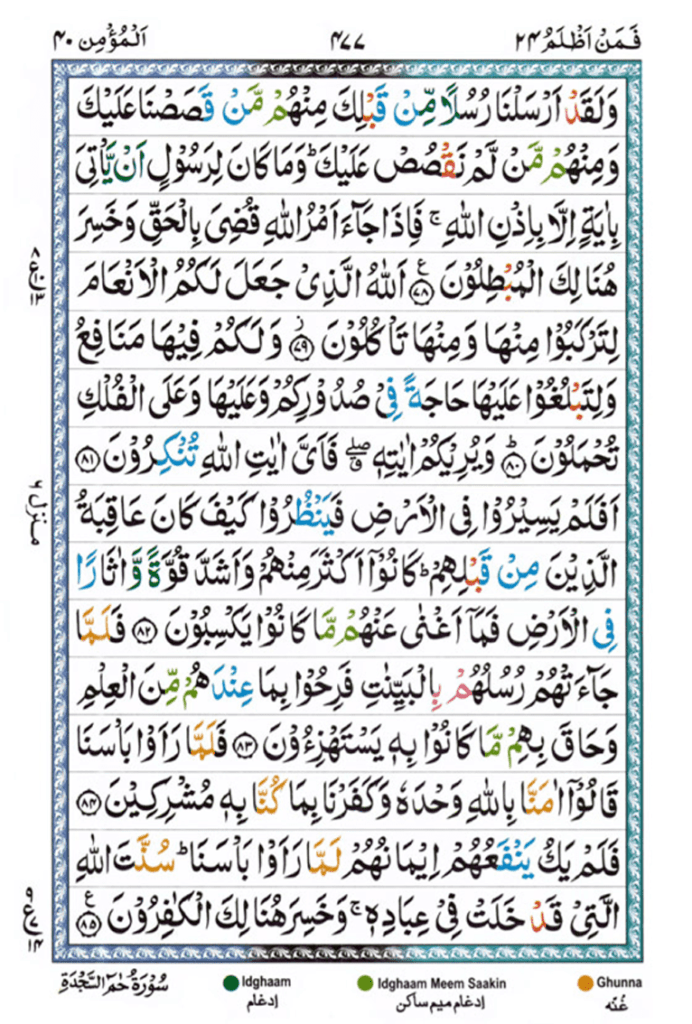 فَمَنْ اَظْلَمُ ٢٤ ٤٧٧ اَلْمُؤْمِن ٤٠
وَلَقَدْ اَرْسَلْنَا رُسُلًا مِّنْ قَبْلِكَ مِنْهُمْ مَّنْ قَصَصْنَا عَلَيْكَ
وَمِنْهُمْ مَّنْ لَّمْ نَقْصُصْ عَلَيْكَ ؕ وَمَا كَانَ لِرَسُوْلٍ اَنْ يَّاْتِىَ
بِاٰيَةٍ اِلَّا بِاِذْنِ اللّٰهِ ۚ فَاِذَا جَآءَ اَمْرُ اللّٰهِ قُضِىَ بِالْحَقِّ وَخَسِرَ
هُنَالِكَ الْمُبْطِلُوْنَ ﴿٧٨﴾ اَللّٰهُ الَّذِىْ جَعَلَ لَكُمُ الْاَنْعَامَ
لِتَرْكَبُوْا مِنْهَا وَمِنْهَا تَاْكُلُوْنَ ﴿٧٩﴾ وَلَكُمْ فِيْهَا مَنَافِعُ
وَلِتَبْلُغُوْا عَلَيْهَا حَاجَةً فِىْ صُدُوْرِكُمْ وَعَلَيْهَا وَعَلَى الْفُلْكِ
تُحْمَلُوْنَ ﴿٨٠﴾ؕ وَيُرِيْكُمْ اٰيٰتِهٖ ۖ فَاَىَّ اٰيٰتِ اللّٰهِ تُنْكِرُوْنَ ﴿٨١﴾
اَفَلَمْ يَسِيْرُوْا فِى الْاَرْضِ فَيَنْظُرُوْا كَيْفَ كَانَ عَاقِبَةُ
الَّذِيْنَ مِنْ قَبْلِهِمْ ؕ كَانُوْۤا اَكْثَرَ مِنْهُمْ وَاَشَدَّ قُوَّةً وَّاٰثَارًا
فِى الْاَرْضِ فَمَاۤ اَغْنٰى عَنْهُمْ مَّا كَانُوْا يَكْسِبُوْنَ ﴿٨٢﴾ فَلَمَّا
جَآءَتْهُمْ رُسُلُهُمْ بِالْبَيِّنٰتِ فَرِحُوْا بِمَا عِنْدَهُمْ مِّنَ الْعِلْمِ
وَحَاقَ بِهِمْ مَّا كَانُوْا بِهٖ يَسْتَهْزِءُوْنَ ﴿٨٣﴾ فَلَمَّا رَاَوْا بَاْسَنَا
قَالُوْۤا اٰمَنَّا بِاللّٰهِ وَحْدَهٗ وَكَفَرْنَا بِمَا كُنَّا بِهٖ مُشْرِكِيْنَ ﴿٨٤﴾
فَلَمْ يَكُ يَنْفَعُهُمْ اِيْمَانُهُمْ لَمَّا رَاَوْا بَاْسَنَا ؕ سُنَّتَ اللّٰهِ
الَّتِىْ قَدْ خَلَتْ فِىْ عِبَادِهٖ ۚ وَخَسِرَ هُنَالِكَ الْكٰفِرُوْنَ ﴿٨٥﴾
منزل ٦
سُوْرَةُ حٰمٓ السَّجْدَةِ
Idghaam
ادغام
Idghaam Meem Saakin
ادغام ميم ساكن
Ghunna
غُنّه